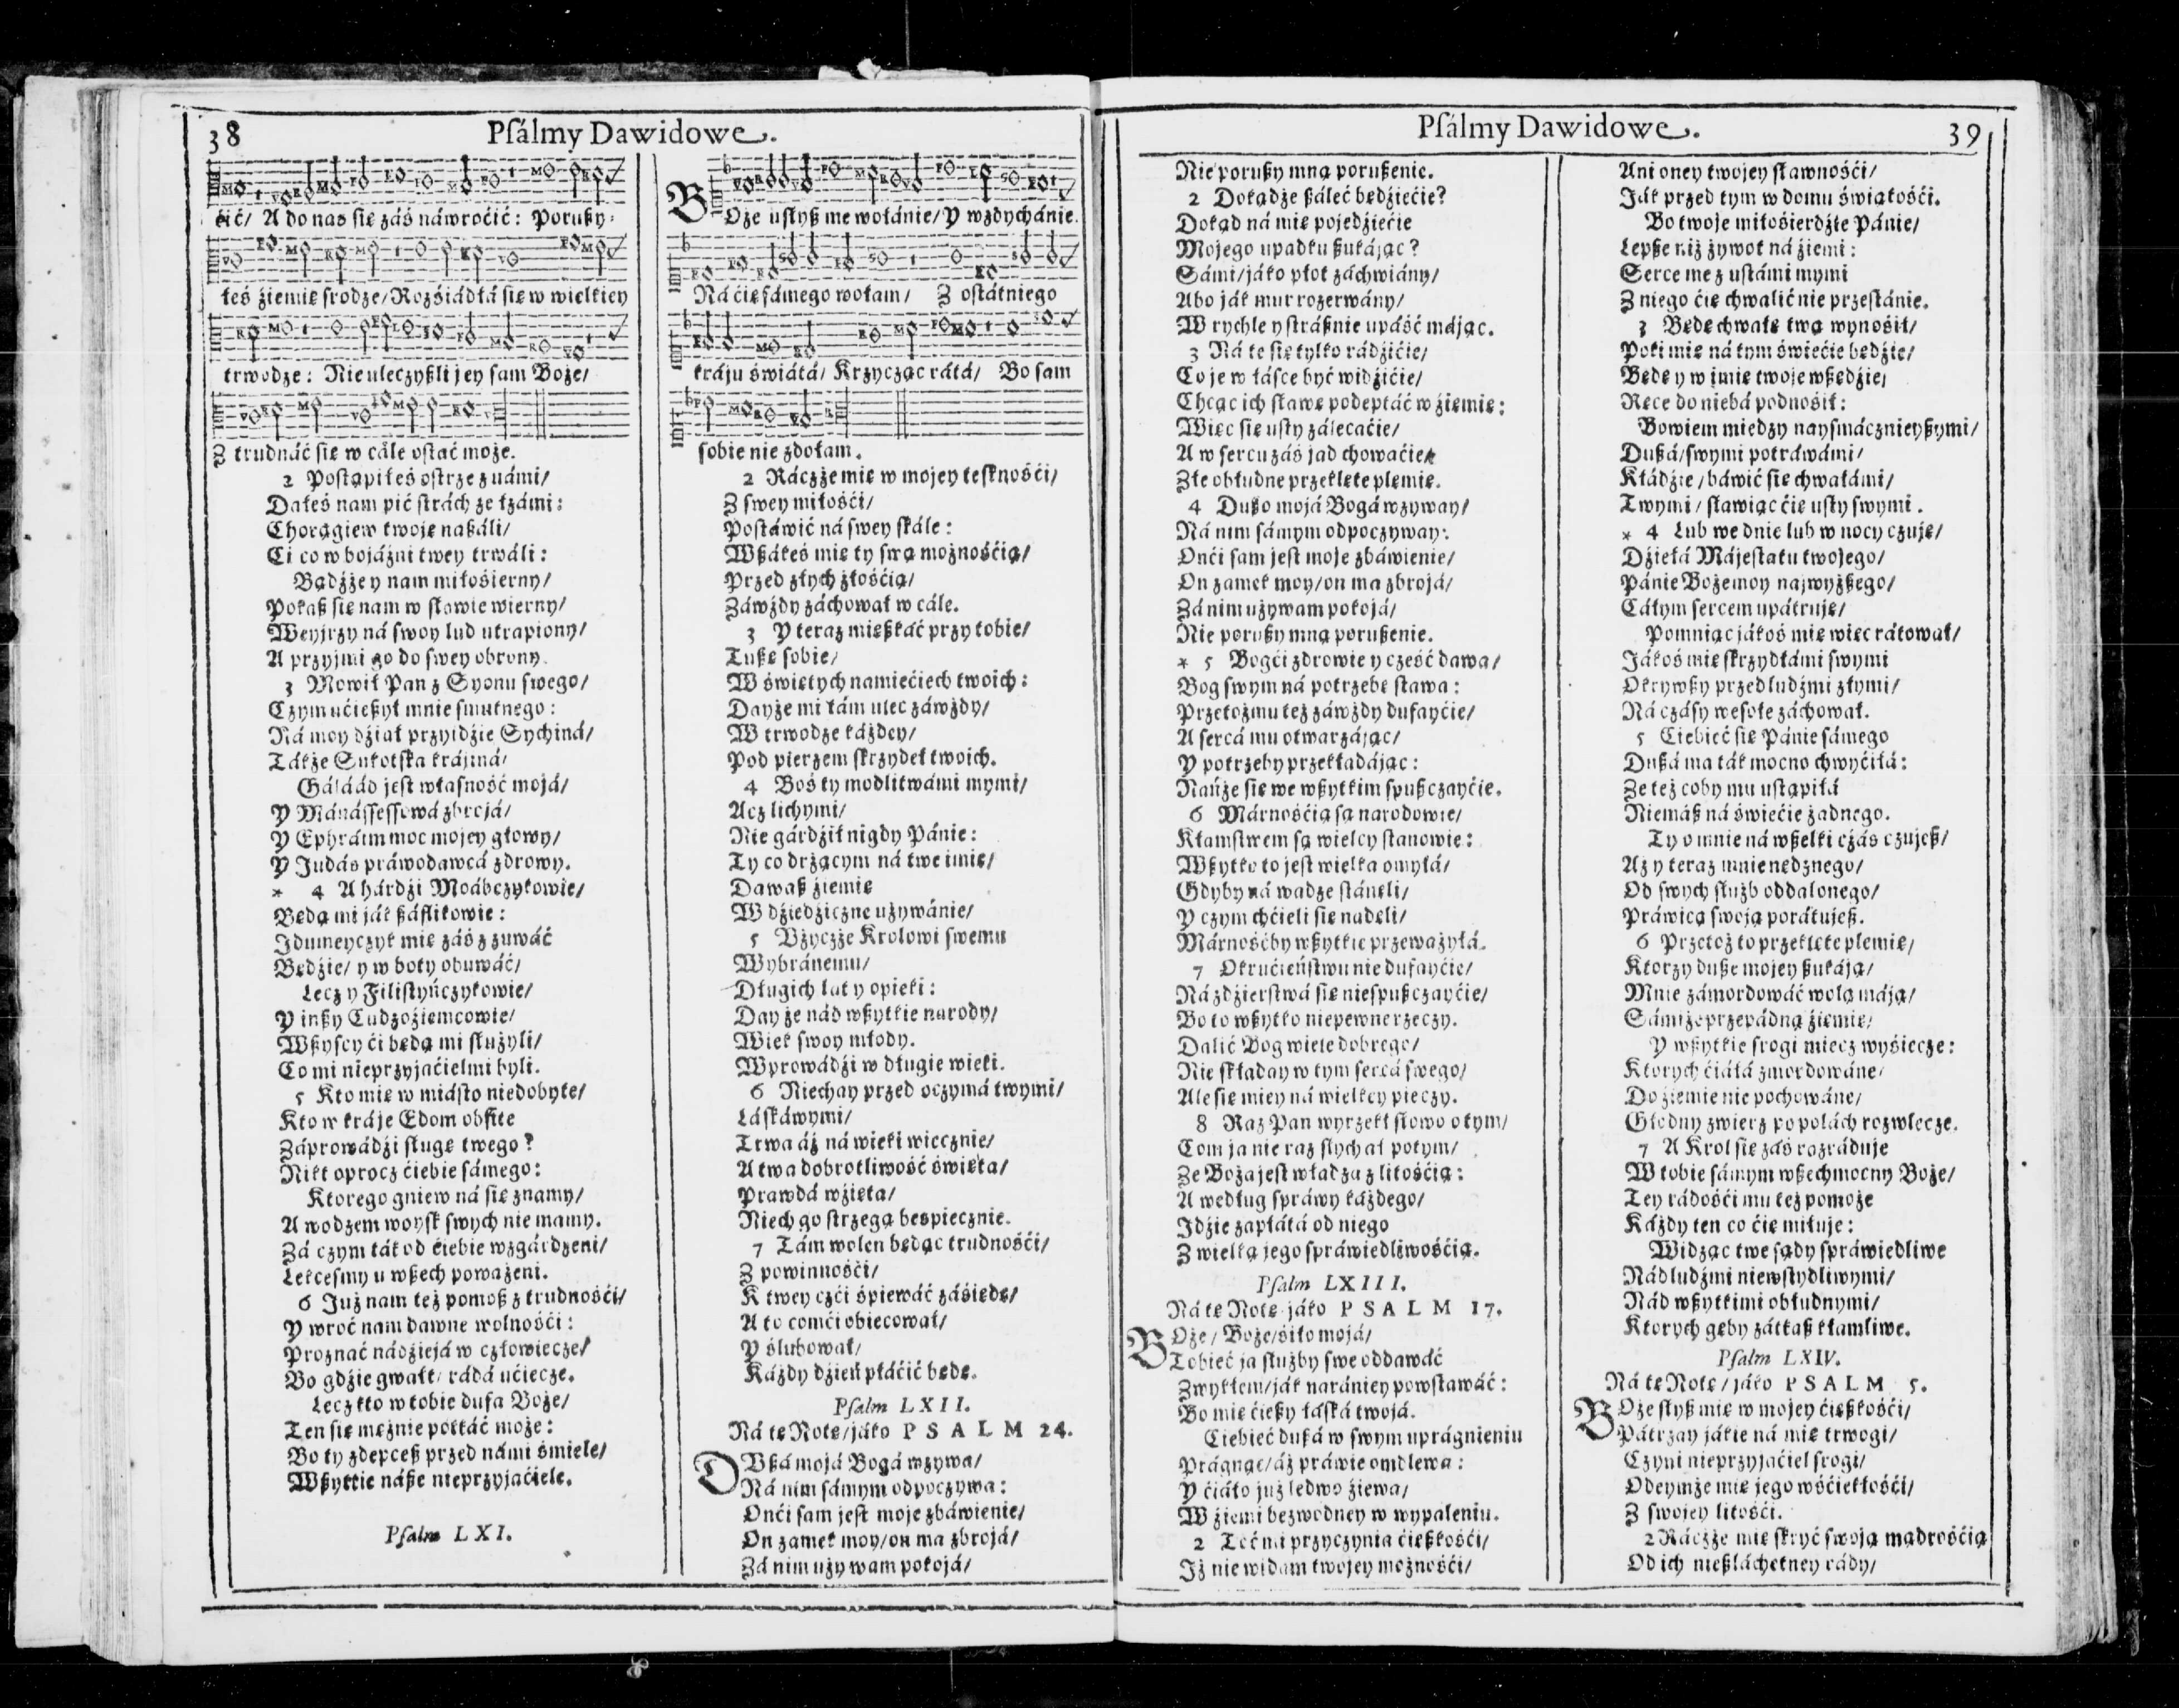 38
Psálmy Dawidowe.
ćić/ A do nas się záś náwroćić: Porußy-
łeś źiemię srodze/ Rozśiádłá się w wielkiey
trwodze: Nie uleczyßli jey sam Boże/
Z trudnáć się w cále ostać może.
2 Postąpiłeś ostrze z námi/
Dałeś nam pić strách ze łzámi:
Chorągiew twoję naßáli/
Ci co w bojáźni twey trwáli:
Bądźże y nam miłośierny/
Pokaß się nam w słowie wierny/
Weyjrzy ná swoy lud utrapiony/
A przyjmi go do swey obrony.
3 Mowił Pan z Syonu swego/
Czym ućießył mnie smutnego:
Ná moy dźiał przyidźie Sychiná/
Tákże Sukotska kráiná/
Gáláád jest własność mojá/
Y Mánássessowá zbrojá/
Y Ephráim moc mojey głowy/
Y Judás práwodawcá zdrowy.
* 4 A hárdźi Moábczykowie/
Będą mi ják ßáflikowie:
Idumeyczyk mię záś zzuwáć
Będźie/ y w boty obuwáć/
Lecz y Filistyńczykowie/
Y inßy Cudzoźiemcowie/
Wßyscy ći będą mi służyli/
Co mi nieprzyjaćielmi byli.
5 Kto mię w miásto niedobyte/
Kto w kráje Edom obfite
Záprowádźi sługę twego?
Nikt oprocz ćiebie sámego:
Ktorego gniew ná się znamy/
A wodzem woysk swych nie mamy.
Zá czym ták od ćiebie wzgárdzeni/
Lekcesmy u wßech poważeni.
6 Już nam też pomoß z trudnośći/
Y wroć nam dawne wolnośći:
Proznać nádźiejá w człowiecze/
Bo gdźie gwałt/ rádá ućiecze.
Lecz kto w tobie dufa Boże/
Ten się mężnie potkáć może:
Bo ty zdepceß przed námi śmiele/
Wßytkie náße nieprzyjaćiele.
Psalm LXI.
BOże usłyß me wołánie/ Y wzdychánie.
Ná ćię sámego wołam/ Z ostátniego
kráju świátá/ Krzycząc rátá/ Bo sam
sobie nie zdołam.
2 Ráczże mię w mojey tesknośći/
Z swey miłośći/
Postáwić ná swey skále:
Wßákeś mię ty swą możnośćią/
Przed złych złośćią/
Záwżdy záchował w cále.
3 Y teraz mießkáć przy tobie/
Tußę sobie/
W świętych namiećiech twoich:
Dayże mi tám ulec záwżdy/
W trwodze káżdey/
Pod pierzem skrzydeł twoich.
4 Boś ty modlitwámi mymi/
Acz lichymi/
Nie gárdźił nigdy Pánie:
Ty co drżącym ná twe imię/
Dawaß źiemię
W dźiedźiczne używánie/
5 Vżyczże Krolowi swemu
Wybránemu/
Długich lat y opieki:
Day że nád wßytkie narody/
Wiek swoy młody.
Wprowádźi w długie wieki.
6 Niechay przed oczymá twymi/
Láskáwymi/
Trwa áż ná wieki wiecznie/
A twa dobrotliwość święta/
Prawdá wźięta/
Niech go strzegą bespiecznie.
7 Tám wolen będąc trudnośći/
Z powinnośći/
K twey czći śpiewáć záśiędę/
A to comći obiecował/
Y ślubował/
Káżdy dźień płáćić będę.
Psalm LXII.
Ná tę Notę/ jáko PSALM 24.
DVßá mojá Bogá wzywa/
Ná nim sámym odpoczywa:
Onći sam jest moje zbáwienie/
On zamek moy/ on ma zbrojá/
Zá nim używam pokojá/
Psálmy Dawidowe.
39
Nie porußy mną porußenie.
2 Dokądże ßáleć będźiećie?
Dokąd ná mię pojedźiećie
Mojego upadku ßukájąc?
Sámi/ jáko płot záchwiány/
Abo ják mur rozerwány/
W rychle y stráßnie upáść májąc.
3 Ná te się tylko rádźićie/
Co je w łásce być widźićie/
Chcąc ich sławę podeptáć w źiemię:
Więc się usty zálecaćie/
A w sercu záś jad chowaćie/
Złe obłudne przeklęte plemię.
4 Dußo mojá Bogá wzyway/
Ná nim sámym odpoczyway:
Onći sam jest moje zbáwienie/
On zamek moy/ on ma zbrojá/
Zá nim używam pokojá/
Nie porußy mną porußenie.
* 5 Bogći zdrowie y cześć dawa/
Bog swym ná potrzebę stawa:
Przetożmu też záwżdy dufayćie/
A sercá mu otwarzájąc/
Y potrzeby przekładájąc:
Nańże się we wßytkim spußczayćie.
6 Márnośćią są narodowie/
Kłamstwem są wielcy stanowie:
Wßytko to jest wielka omyłá/
Gdyby ná wadze stánęli/
Y czym chćieli się nadęli/
Márnośćby wßytkie przeważyłá.
7 Okrućieństwu nie dufayćie/
Ná zdźierstwá się nie spußczayćie/
Bo to wßytko niepewne rzeczy.
Dalić Bog wiele dobrego/
Nie składay w tym sercá swego/
Ale się miey ná wielkey pieczy.
8 Raz Pan wyrzekł słowo o tym/
Com ja nie raz słychał potym/
Ze Boża jest władza z litośćią:
A według spráwy káżdego/
Idźie zapłátá od niego
Z wielką jego spráwiedliwośćią.
Psalm LXIII.
Ná tę Notę jáko PSALM 17.
BOże/ Boże/ śiło mojá/
Tobieć ja służby swe oddawáć
Zwykłem/ ják narániey powstawáć:
Bo mię ćießy łáská twojá.
Ciebieć dußá w swym uprágnieniu
Prágnąc/ áż práwie omdlewa:
Y ćiáło już ledwo źiewa/
W źiemi bezwodney w wypaleniu.
2 Toć mi przyczynia ćießkośći/
Iż nie widam twojey możnośći/
Ani oney twojey sławnośći/
Ják przed tym w domu świątośći.
Bo twoje miłośierdźie Pánie/
Lepße niż żywot ná źiemi:
Serce me z ustámi mymi
Z niego ćię chwalić nie przestánie.
3 Będę chwałę twą wynośił/
Poki mię ná tym świećie będźie/
Będę y w imię twoje wßędźie/
Ręce do niebá podnośił:
Bowiem między naysmácznieyßymi/
Dußá/ swymi potráwámi/
Kłádźie/ báwić się chwałámi/
Twymi/ sławiąc ćię usty swymi.
* 4 Lub we dnie lub w nocy czuję/
Dźiełá Májestatu twojego/
Pánie Boże moy najwyżßego/
Cáłym sercem upátruję/
Pomniąc jákoś mię więc rátował/
Jákoś mię skrzydłámi swymi
Okrywßy przed ludźmi złymi/
Ná czásy wesołe záchował.
5 Ciebieć się Pánie sámego
Dußá ma ták mocno chwyćiłá:
Ze też coby mu ustąpiłá
Niemáß ná świećie żadnego.
Ty o mnie ná wßelki czás czujeß/
Aż y teraz mnie nędznego/
Od swych służb oddalonego/
Práwicą swoją porátujeß.
6 Przetoż to przeklęte plemię/
Ktorzy dußę mojey ßukáją/
Mnie zámordowáć wolą máją/
Sámiże przepádną źiemię/
Y wßytkie srogi miecz wyśiecze:
Ktorych ćiáłá zmordowáne/
Do źiemie nie pochowáne/
Głodny zwierz po polách rozwlecze.
7 A Krol się záś rozráduje
W tobie sámym wßechmocny Boże/
Tey rádośći mu też pomoże
Káżdy ten co ćię miłuje:
Widząc twe sądy spráwiedliwe
Nád ludźmi niewstydliwymi/
Nád wßytkimi obłudnymi/
Ktorych gęby zátkaß kłamliwe.
Psalm LXIV.
Ná tę Notę/ jáko PSALM 5.
BOże słyß mię w mojey ćießkośći/
Pátrzay jákie ná mię trwogi/
Czyni nieprzyjaćiel srogi/
Odeymże mię jego wśćiekłośći/
Z swojey litośći.
2 Ráczże mię skryć swoją mądrośćią
Od ich nießláchetney rády/